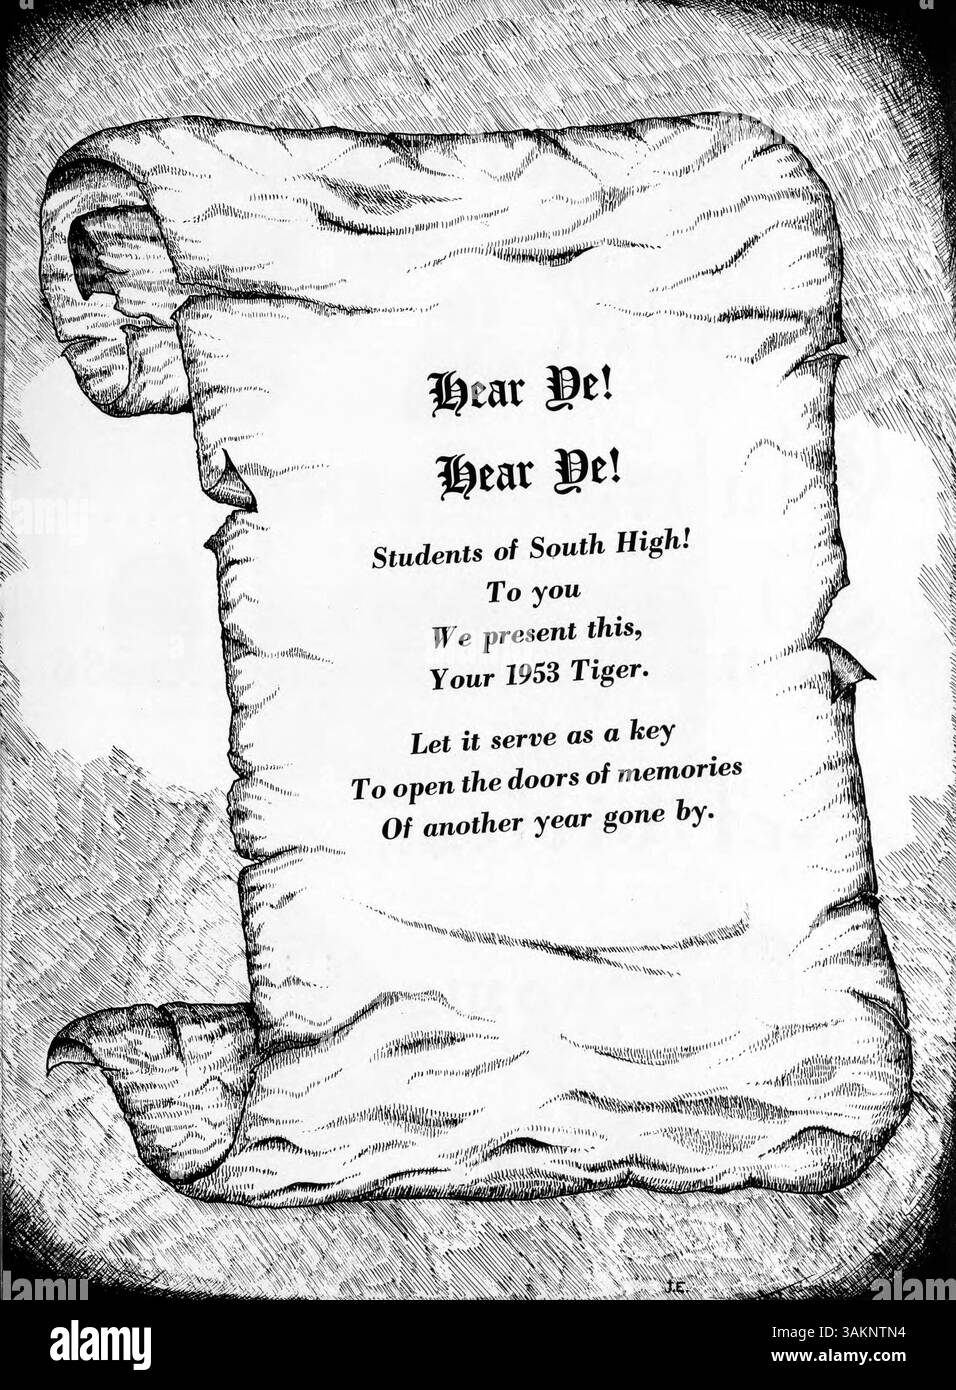 Hear Ye!
Hear Ye!
Students of South High!
To you
We present this,
Your 1953 Tiger.
Let it serve as a key
To open the doors of memories
Of another year gone by.
J.E.
alamy
alamy
alamy
a
a
a
alamy
Image ID: 3AKNTN4
www.alamy.com